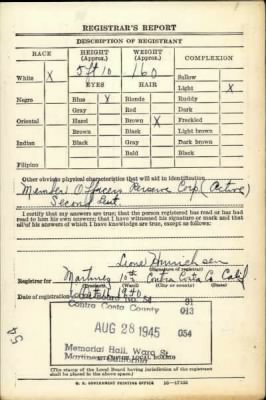 REGISTRAR'S REPORT
DESCRIPTION OF REGISTRANT
RACE HEIGHT (Approx.) WEIGHT (Approx.) COMPLEXION
5 ft 10 160
White X Sallow
EYES HAIR Light X
Negro Blue X Blonde Ruddy
Gray Red Dark
Oriental Hazel Brown X Freckled
Brown Black Light brown
Indian Black Gray Dark brown
Bald Black
Filipino
Other obvious physical characteristics that will aid in identification
Member Officers Reserve Corp (Active)
Second Lieut
I certify that my answers are true; that the person registered has read or has had
read to him his own answers; that I have witnessed his signature or mark and that
all of his answers of which I have knowledge are true, except as follows:
(Signature of registrar)
Registrar for Martinez 10th Contra Costa Co Calif
(Precinct) (Ward) (City or county) (State)
Date of registration 1940
Board No. 54 91
Contra Costa County 013
AUG 28 1945 054
Memorial Hall, Ward St
Martinez
(The stamp of the Local Board having jurisdiction of the registrant
shall be placed in the above space)
U. S. GOVERNMENT PRINTING OFFICE 16-17105